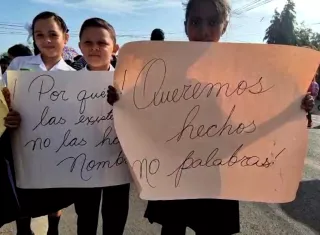 ¡Por qué
las existe
no las ha
Nomb
¡Queremos
hechos
no palabras!